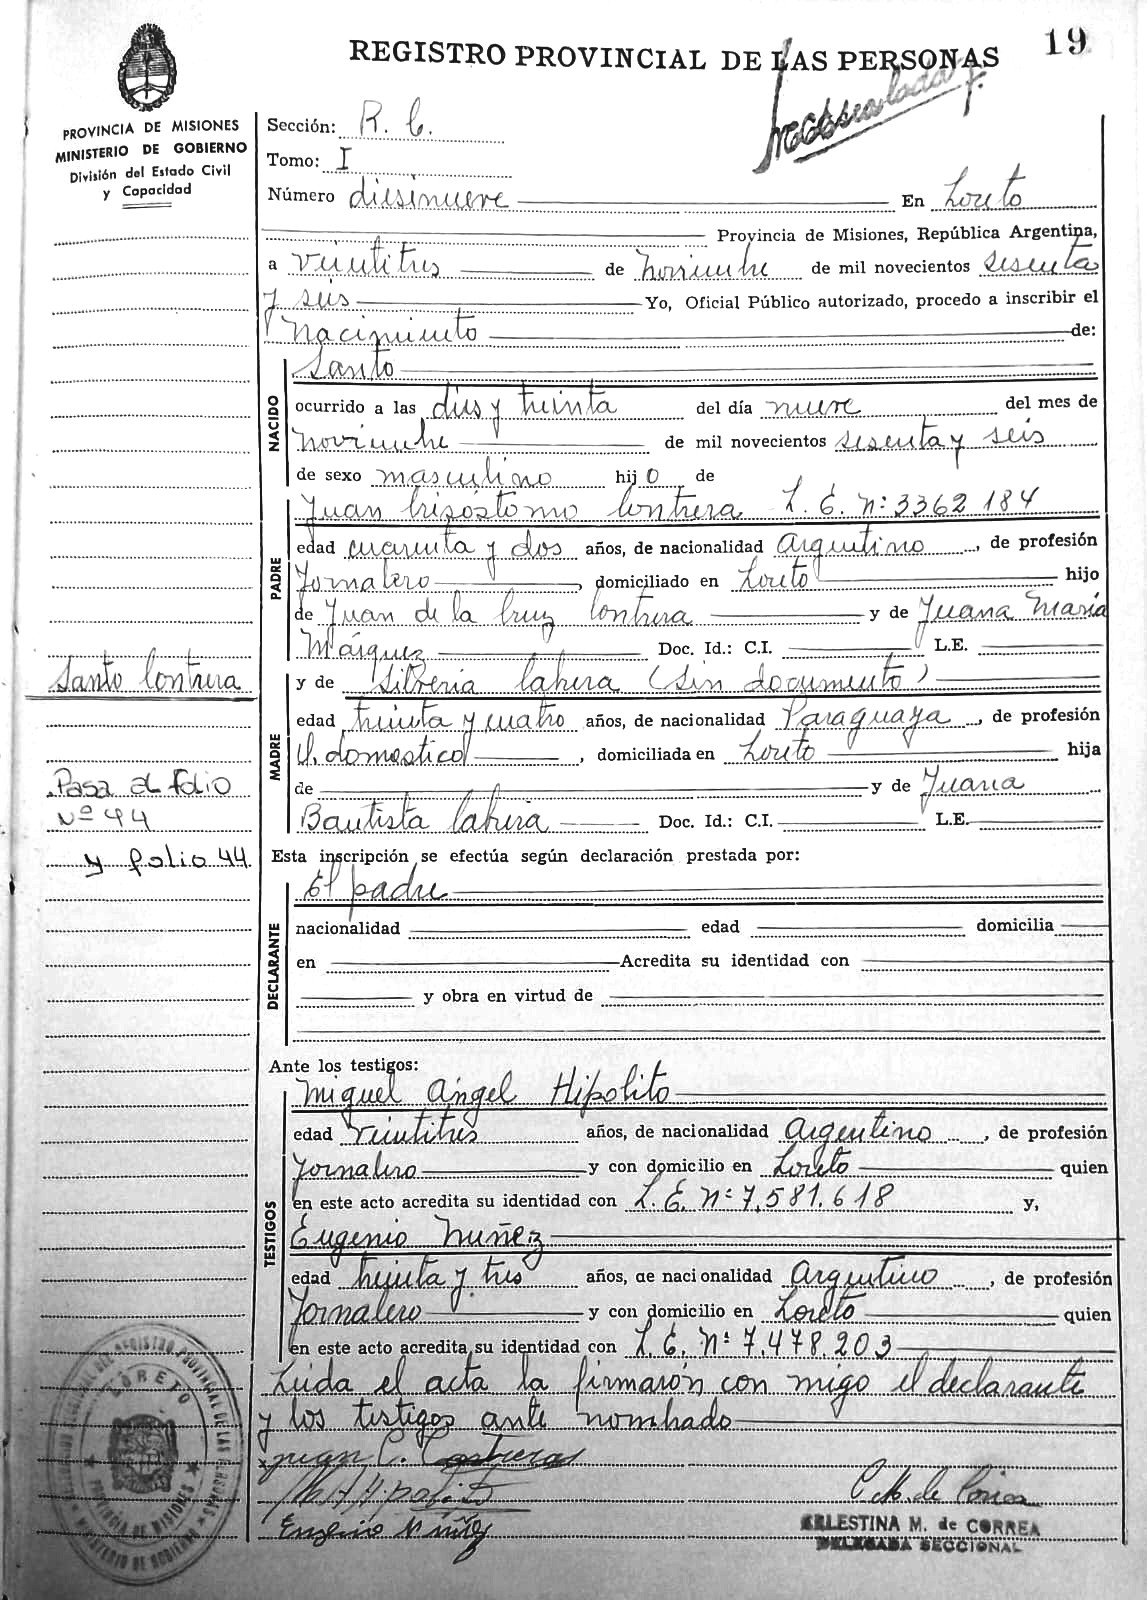 19
REGISTRO PROVINCIAL DE LAS PERSONAS
PROVINCIA DE MISIONES
MINISTERIO DE GOBIERNO
División del Estado Civil
y Capacidad
Sección: R. C.
Tomo: I
Número diesinueve En Loreto
Provincia de Misiones, República Argentina,
a veintitres de noviembre de mil novecientos sesenta
y seis Yo, Oficial Público autorizado, procedo a inscribir el
Nacimiento de:
NACIDO
Santo
ocurrido a las dies y treinta del día nueve del mes de
noviembre de mil novecientos sesenta y seis
de sexo masculino hijo de
PADRE
Juan Crisóstomo Contrera L. E. Nº 3362184
edad cuarenta y dos años, de nacionalidad Argentino, de profesión
Jornalero, domiciliado en Loreto hijo
de Juan de la Cruz Contrera y de Juana María
Márquez Doc. Id.: C.I. L.E.
Santo Contrera
MADRE
y de Silveria Cabrera (sin documento)
edad treinta y cuatro años, de nacionalidad Paraguaya, de profesión
Q. domestico, domiciliada en Loreto hija
de y de Juana
Bautista Cabrera Doc. Id.: C.I. L.E.
Pasa al folio
Nº 44
y folio 44
Esta inscripción se efectúa según declaración prestada por:
DECLARANTE
El padre
nacionalidad edad domicilia
en Acredita su identidad con
y obra en virtud de
Ante los testigos:
TESTIGOS
Miguel Angel Hipolito
edad veintitres años, de nacionalidad Argentino, de profesión
Jornalero y con domicilio en Loreto quien
en este acto acredita su identidad con L. E. Nº 7.581.618 y,
Eugenio Nuñez
edad treinta y tres años, de nacionalidad Argentino, de profesión
Jornalero y con domicilio en Loreto quien
en este acto acredita su identidad con L. E. Nº 7.478.203
Leida el acta la firmarón con migo el declarante
y los testigos ante nombrado
Juan C. Contreras
M A Hipolito
Eugenio Nuñez
C. M. de Correa
CELESTINA M. de CORREA
DELEGADA SECCIONAL
LORETO
PROVINCIA DE MISIONES
MINISTERIO DE GOBIERNO